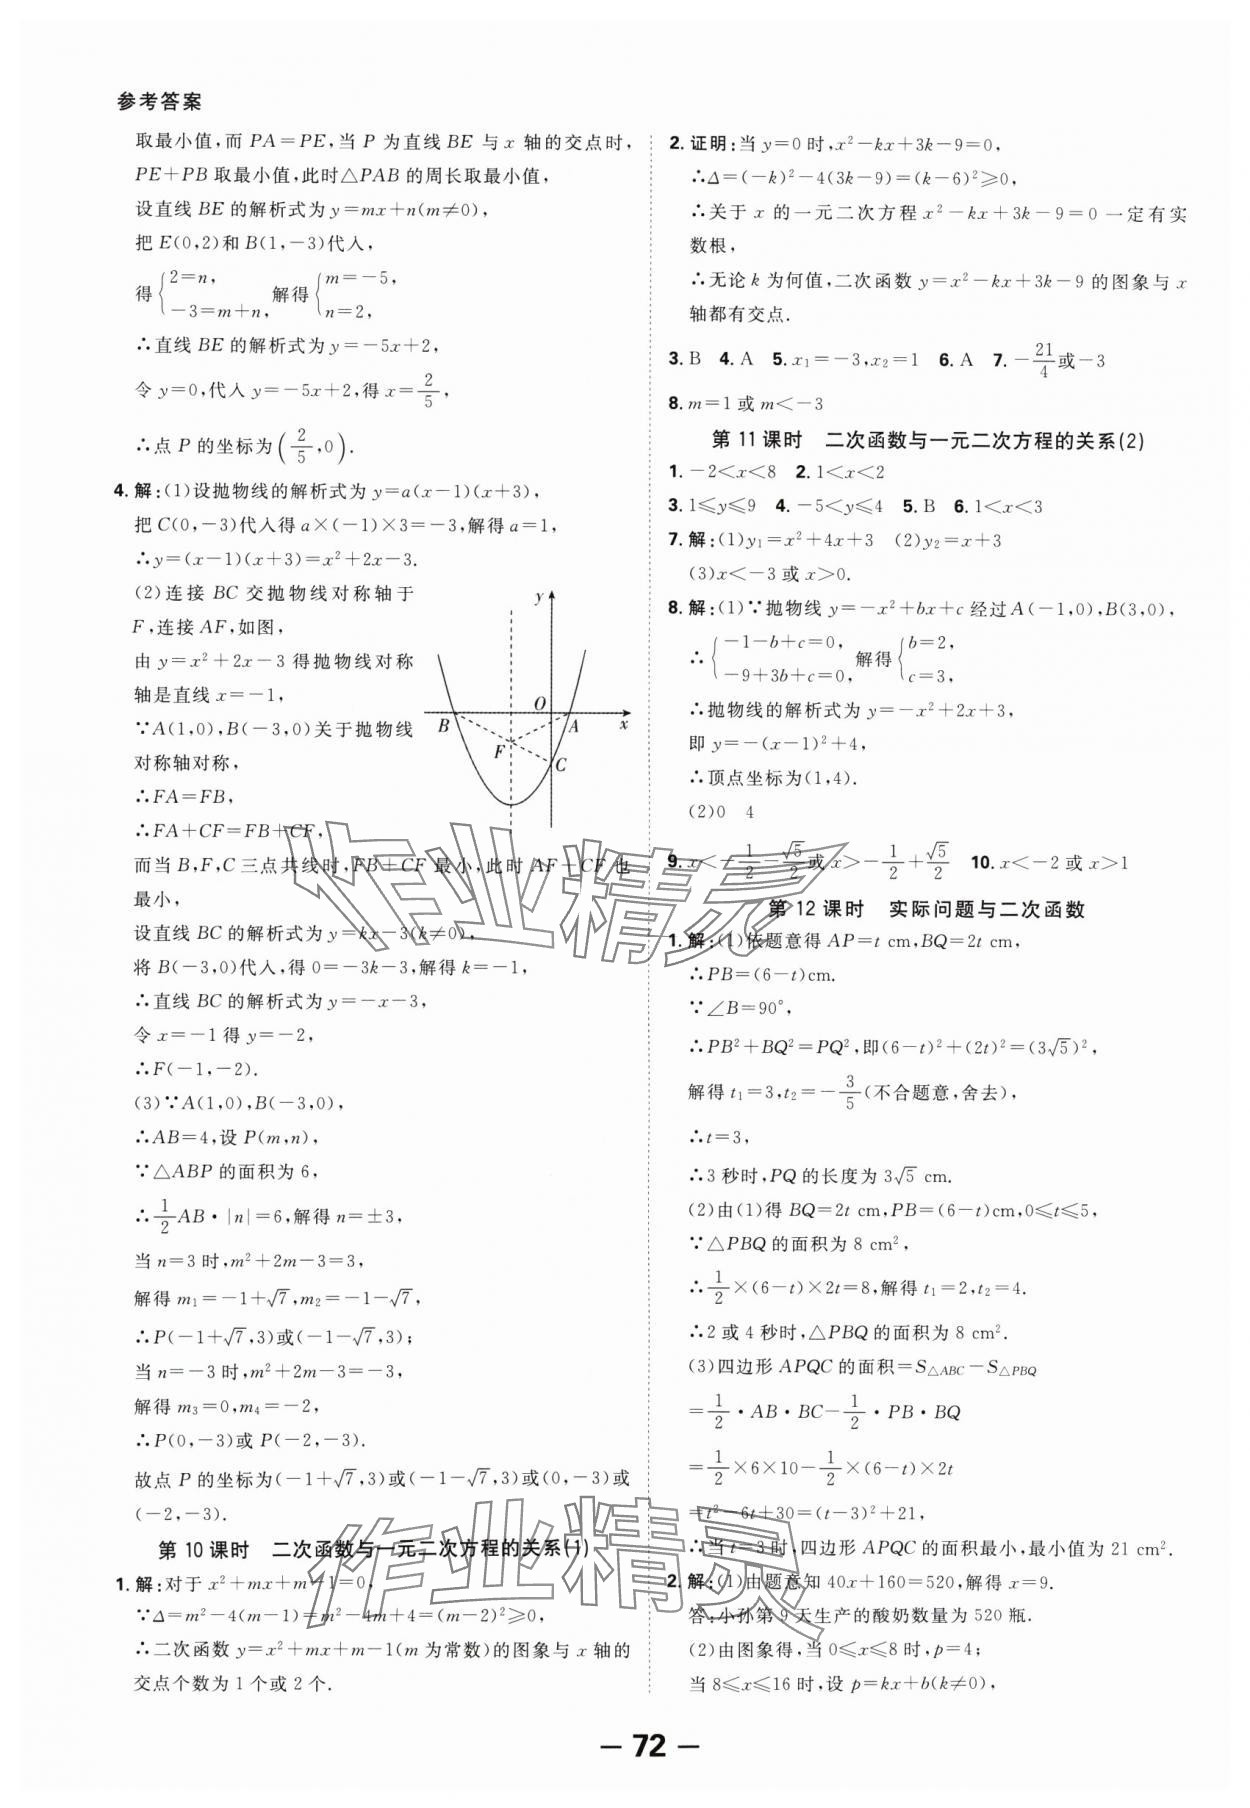 参考答案
取最小值,而 PA=PE,当 P 为直线 BE 与 x 轴的交点时,
PE+PB 取最小值,此时△PAB 的周长取最小值,
设直线 BE 的解析式为 y=mx+n(m≠0),
把 E(0,2)和 B(1,-3)代入,
得{2=n, -3=m+n, 解得{m=-5, n=2,
∴直线 BE 的解析式为 y=-5x+2,
令 y=0,代入 y=-5x+2,得 x=2/5,
∴点 P 的坐标为(2/5,0).
4.解:(1)设抛物线的解析式为 y=a(x-1)(x+3),
把 C(0,-3)代入得 a×(-1)×3=-3,解得 a=1,
∴y=(x-1)(x+3)=x²+2x-3.
(2)连接 BC 交抛物线对称轴于
F,连接 AF,如图,
由 y=x²+2x-3 得抛物线对称
轴是直线 x=-1,
∵A(1,0),B(-3,0)关于抛物线
对称轴对称,
∴FA=FB,
∴FA+CF=FB+CF,
y
O
B
A
x
F
C
而当 B,F,C 三点共线时,FB+CF 最小,此时 AF+CF 也
最小,
设直线 BC 的解析式为 y=kx-3(k≠0),
将 B(-3,0)代入,得 0=-3k-3,解得 k=-1,
∴直线 BC 的解析式为 y=-x-3,
令 x=-1 得 y=-2,
∴F(-1,-2).
(3)∵A(1,0),B(-3,0),
∴AB=4,设 P(m,n),
∵△ABP 的面积为 6,
∴1/2AB·|n|=6,解得 n=±3,
当 n=3 时,m²+2m-3=3,
解得 m₁=-1+√7,m₂=-1-√7,
∴P(-1+√7,3)或(-1-√7,3);
当 n=-3 时,m²+2m-3=-3,
解得 m₃=0,m₄=-2,
∴P(0,-3)或 P(-2,-3).
故点 P 的坐标为(-1+√7,3)或(-1-√7,3)或(0,-3)或
(-2,-3).
第 10 课时 二次函数与一元二次方程的关系(1)
1.解:对于 x²+mx+m-1=0,
∵Δ=m²-4(m-1)=m²-4m+4=(m-2)²≥0,
∴二次函数 y=x²+mx+m-1(m 为常数)的图象与 x 轴的
交点个数为 1 个或 2 个.
2.证明:当 y=0 时,x²-kx+3k-9=0,
∴Δ=(-k)²-4(3k-9)=(k-6)²≥0,
∴关于 x 的一元二次方程 x²-kx+3k-9=0 一定有实
数根,
∴无论 k 为何值,二次函数 y=x²-kx+3k-9 的图象与 x
轴都有交点.
3.B 4.A 5.x₁=-3,x₂=1 6.A 7.-21/4或-3
8.m=1 或 m<-3
第 11 课时 二次函数与一元二次方程的关系(2)
1.-2<x<8 2.1<x<2
3.1≤y≤9 4.-5<y≤4 5.B 6.1<x<3
7.解:(1)y₁=x²+4x+3 (2)y₂=x+3
(3)x<-3 或 x>0.
8.解:(1)∵抛物线 y=-x²+bx+c 经过 A(-1,0),B(3,0),
∴{-1-b+c=0, -9+3b+c=0, 解得{b=2, c=3,
∴抛物线的解析式为 y=-x²+2x+3,
即 y=-(x-1)²+4,
∴顶点坐标为(1,4).
(2)0 4
9.x<-1/2-√5/2或 x>-1/2+√5/2 10.x<-2 或 x>1
第 12 课时 实际问题与二次函数
1.解:(1)依题意得 AP=t cm,BQ=2t cm,
∴PB=(6-t)cm.
∵∠B=90°,
∴PB²+BQ²=PQ²,即(6-t)²+(2t)²=(3√5)²,
解得 t₁=3,t₂=-3/5(不合题意,舍去),
∴t=3,
∴3 秒时,PQ 的长度为 3√5 cm.
(2)由(1)得 BQ=2t cm,PB=(6-t)cm,0≤t≤5,
∵△PBQ 的面积为 8 cm²,
∴1/2×(6-t)×2t=8,解得 t₁=2,t₂=4.
∴2 或 4 秒时,△PBQ 的面积为 8 cm².
(3)四边形 APQC 的面积=S△ABC-S△PBQ
=1/2·AB·BC-1/2·PB·BQ
=1/2×6×10-1/2×(6-t)×2t
=t²-6t+30=(t-3)²+21,
∴当 t=3 时,四边形 APQC 的面积最小,最小值为 21 cm².
2.解:(1)由题意知 40x+160=520,解得 x=9.
答:小孙第 9 天生产的酸奶数量为 520 瓶.
(2)由图象得,当 0≤x≤8 时,p=4;
当 8≤x≤16 时,设 p=kx+b(k≠0),
作业精灵
作业精灵
— 72 —